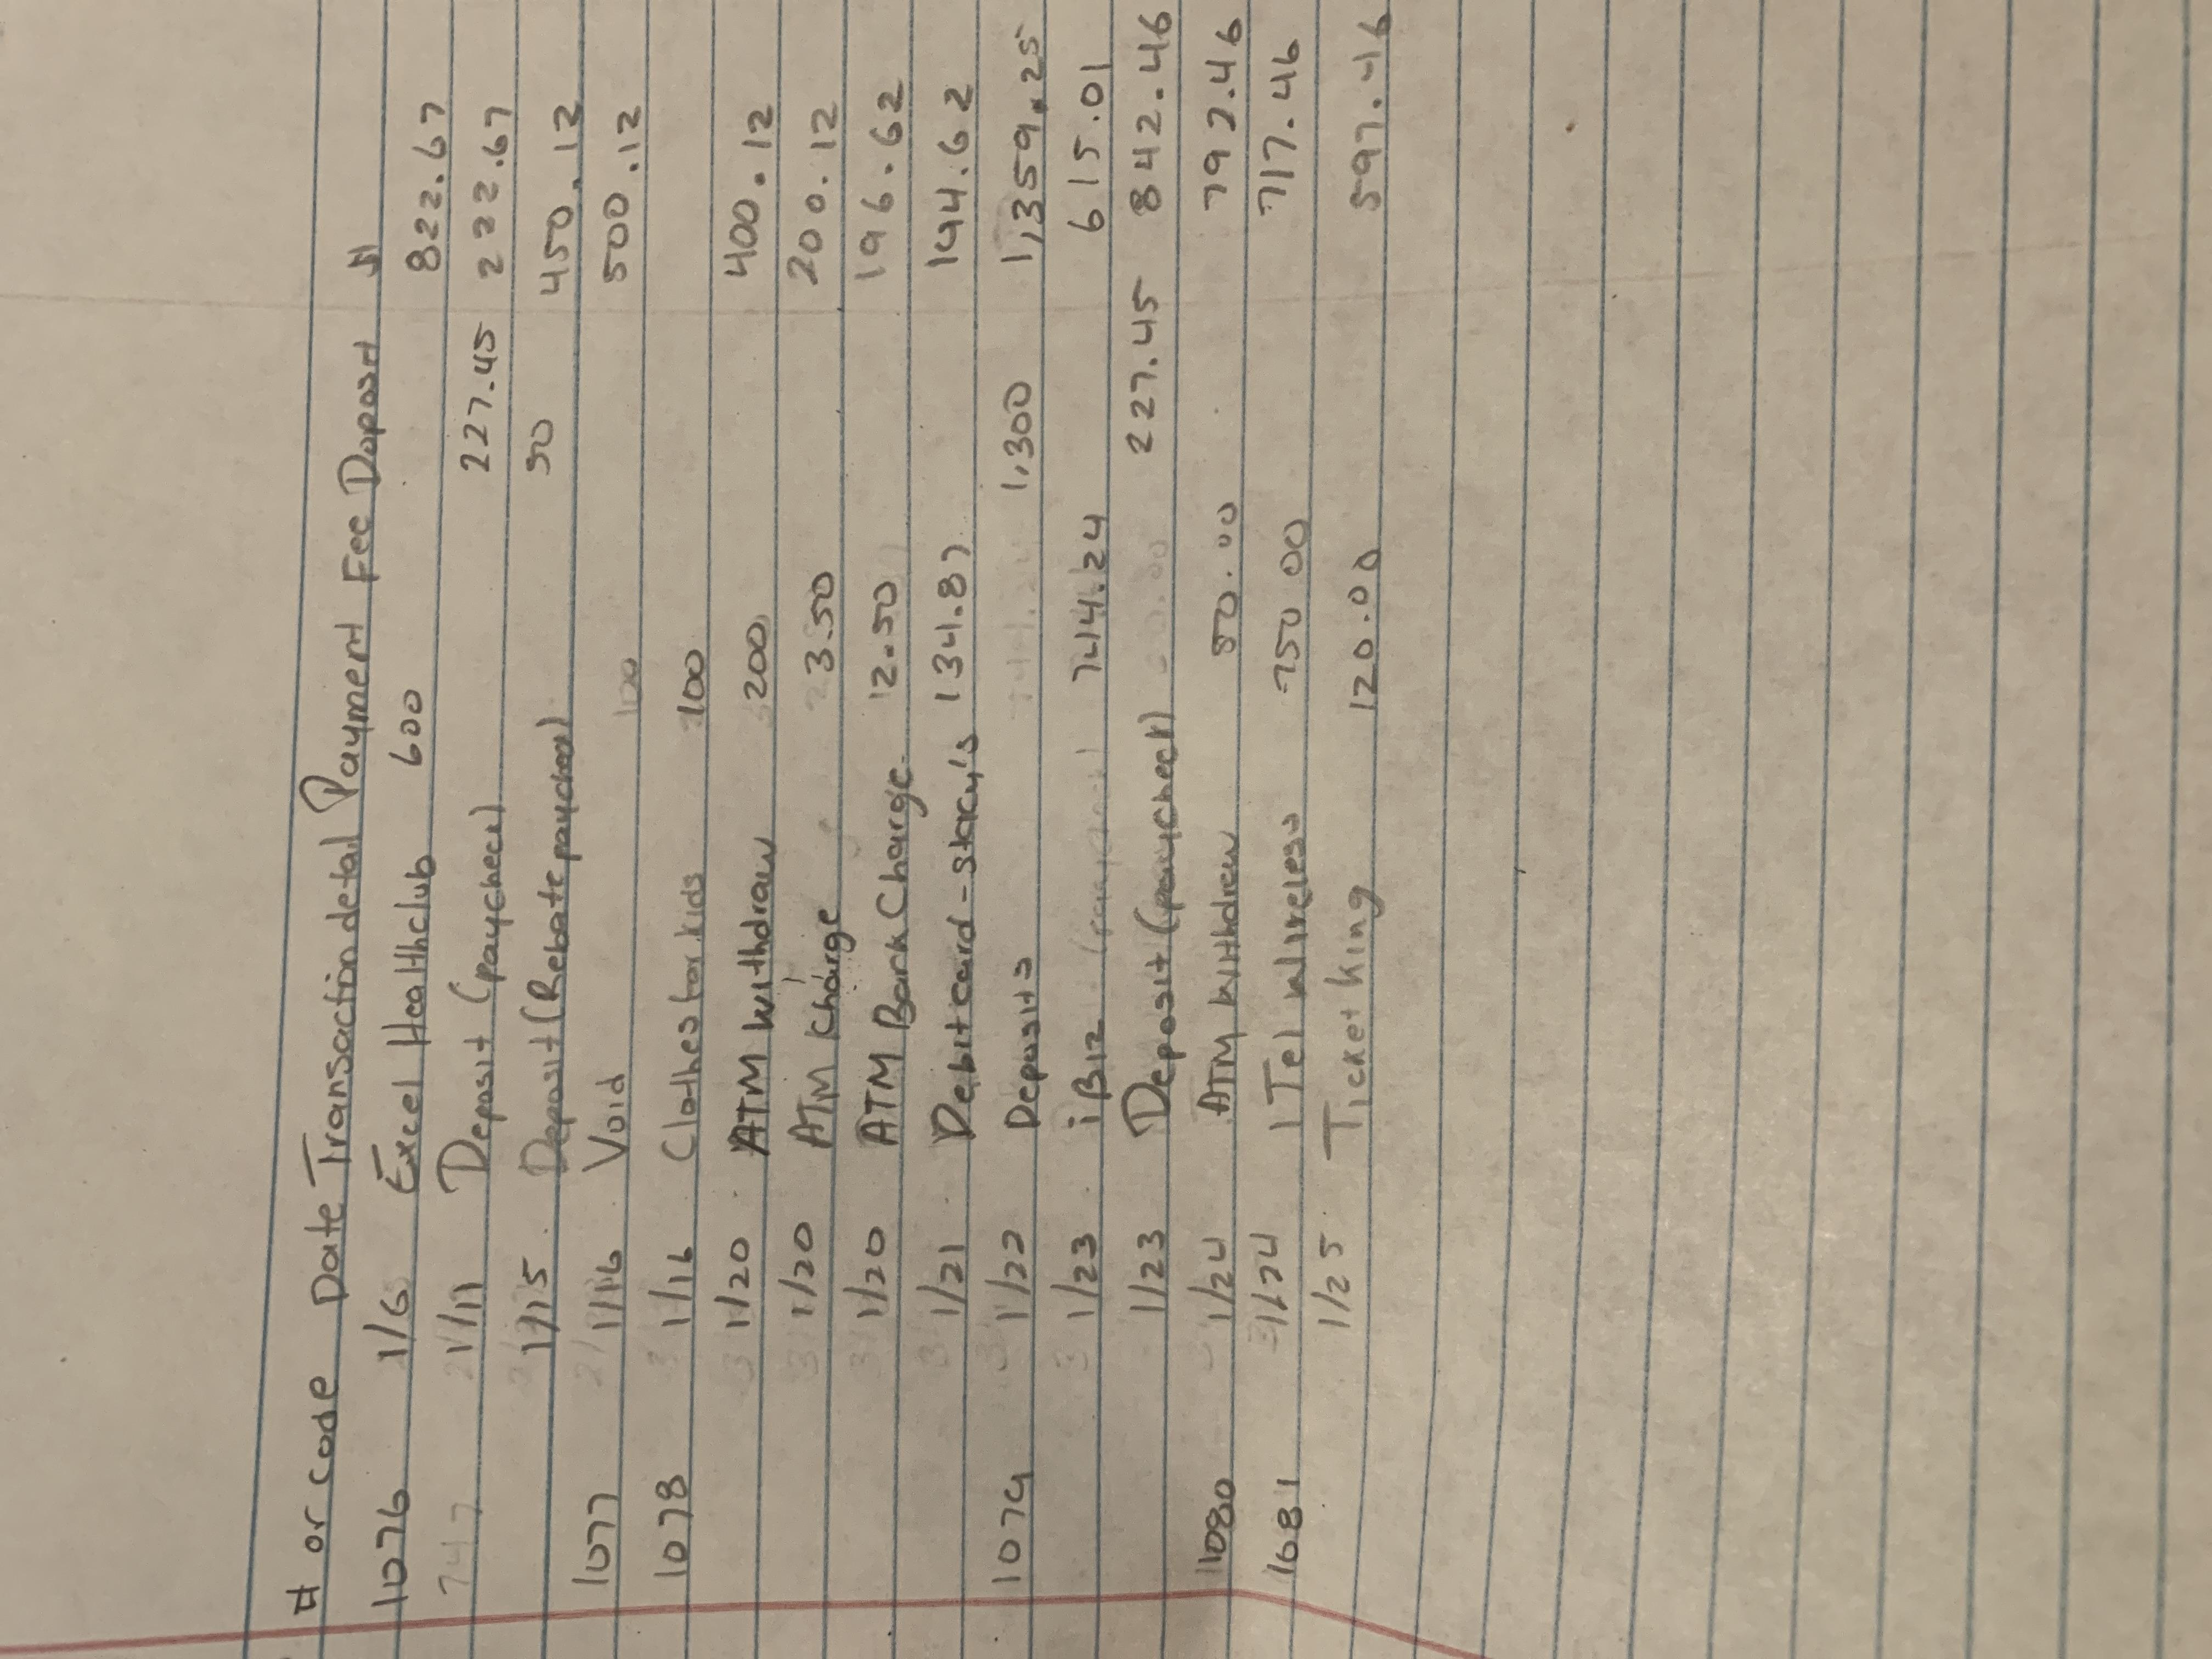 # or code Date Transaction detail Payment Fee Doposit $
822.67
1076 1/6 Excel Healthclub 600 222.67
1/11 Deposit (paycheck) 227.45 450.12
1/15 Deposit (Rebate paycheck) 50 500.12
1077 1/16 Void
1078 1/16 Clothes for kids 100 400.12
1/20 ATM Withdraw 200 200.12
1/20 ATM Charge 3.50 196.62
1/20 ATM Bank Charge 12.50 194.62
1/21 Debit card - 134.87
1/22 Deposits 1,300 1,359.25
1079 1/23 iBiz 744.24 615.01
1/23 Deposit (paycheck) 227.45 842.46
1/24 ATM Withdrew 50.00 792.46
1080 1/24 1 Tel Wireless 750 00 717.46
1081 1/25 Ticket King 120.00 597.46